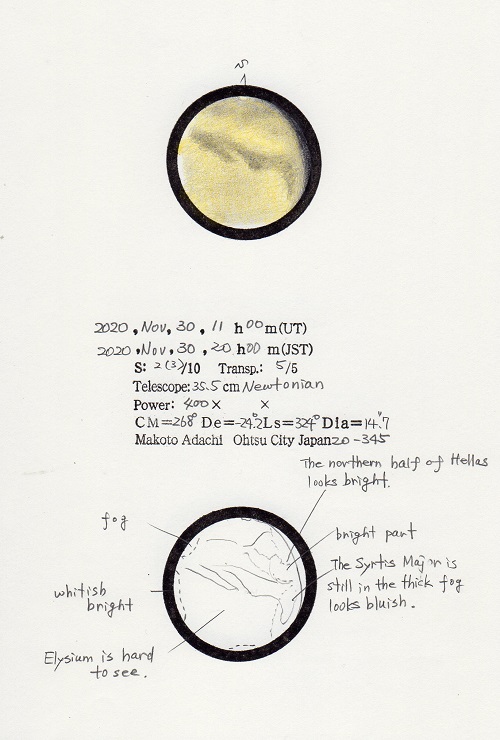 S
2020, Nov, 30, 11 h 00 m (UT)
2020, Nov, 30, 20 h 00 m (JST)
S: 2(3)/10 Transp.: 5/5
Telescope: 35.5 cm Newtonian
Power: 400× ×
CM=268° De=-24.2° Ls=324° Dia=14."7
Makoto Adachi Ohtsu City Japan 20-345
The northern half of Hellas
looks bright.
fog
bright part
The Syrtis Major is
still in the thick fog
looks bluish.
whitish
bright
Elysium is hard
to see.